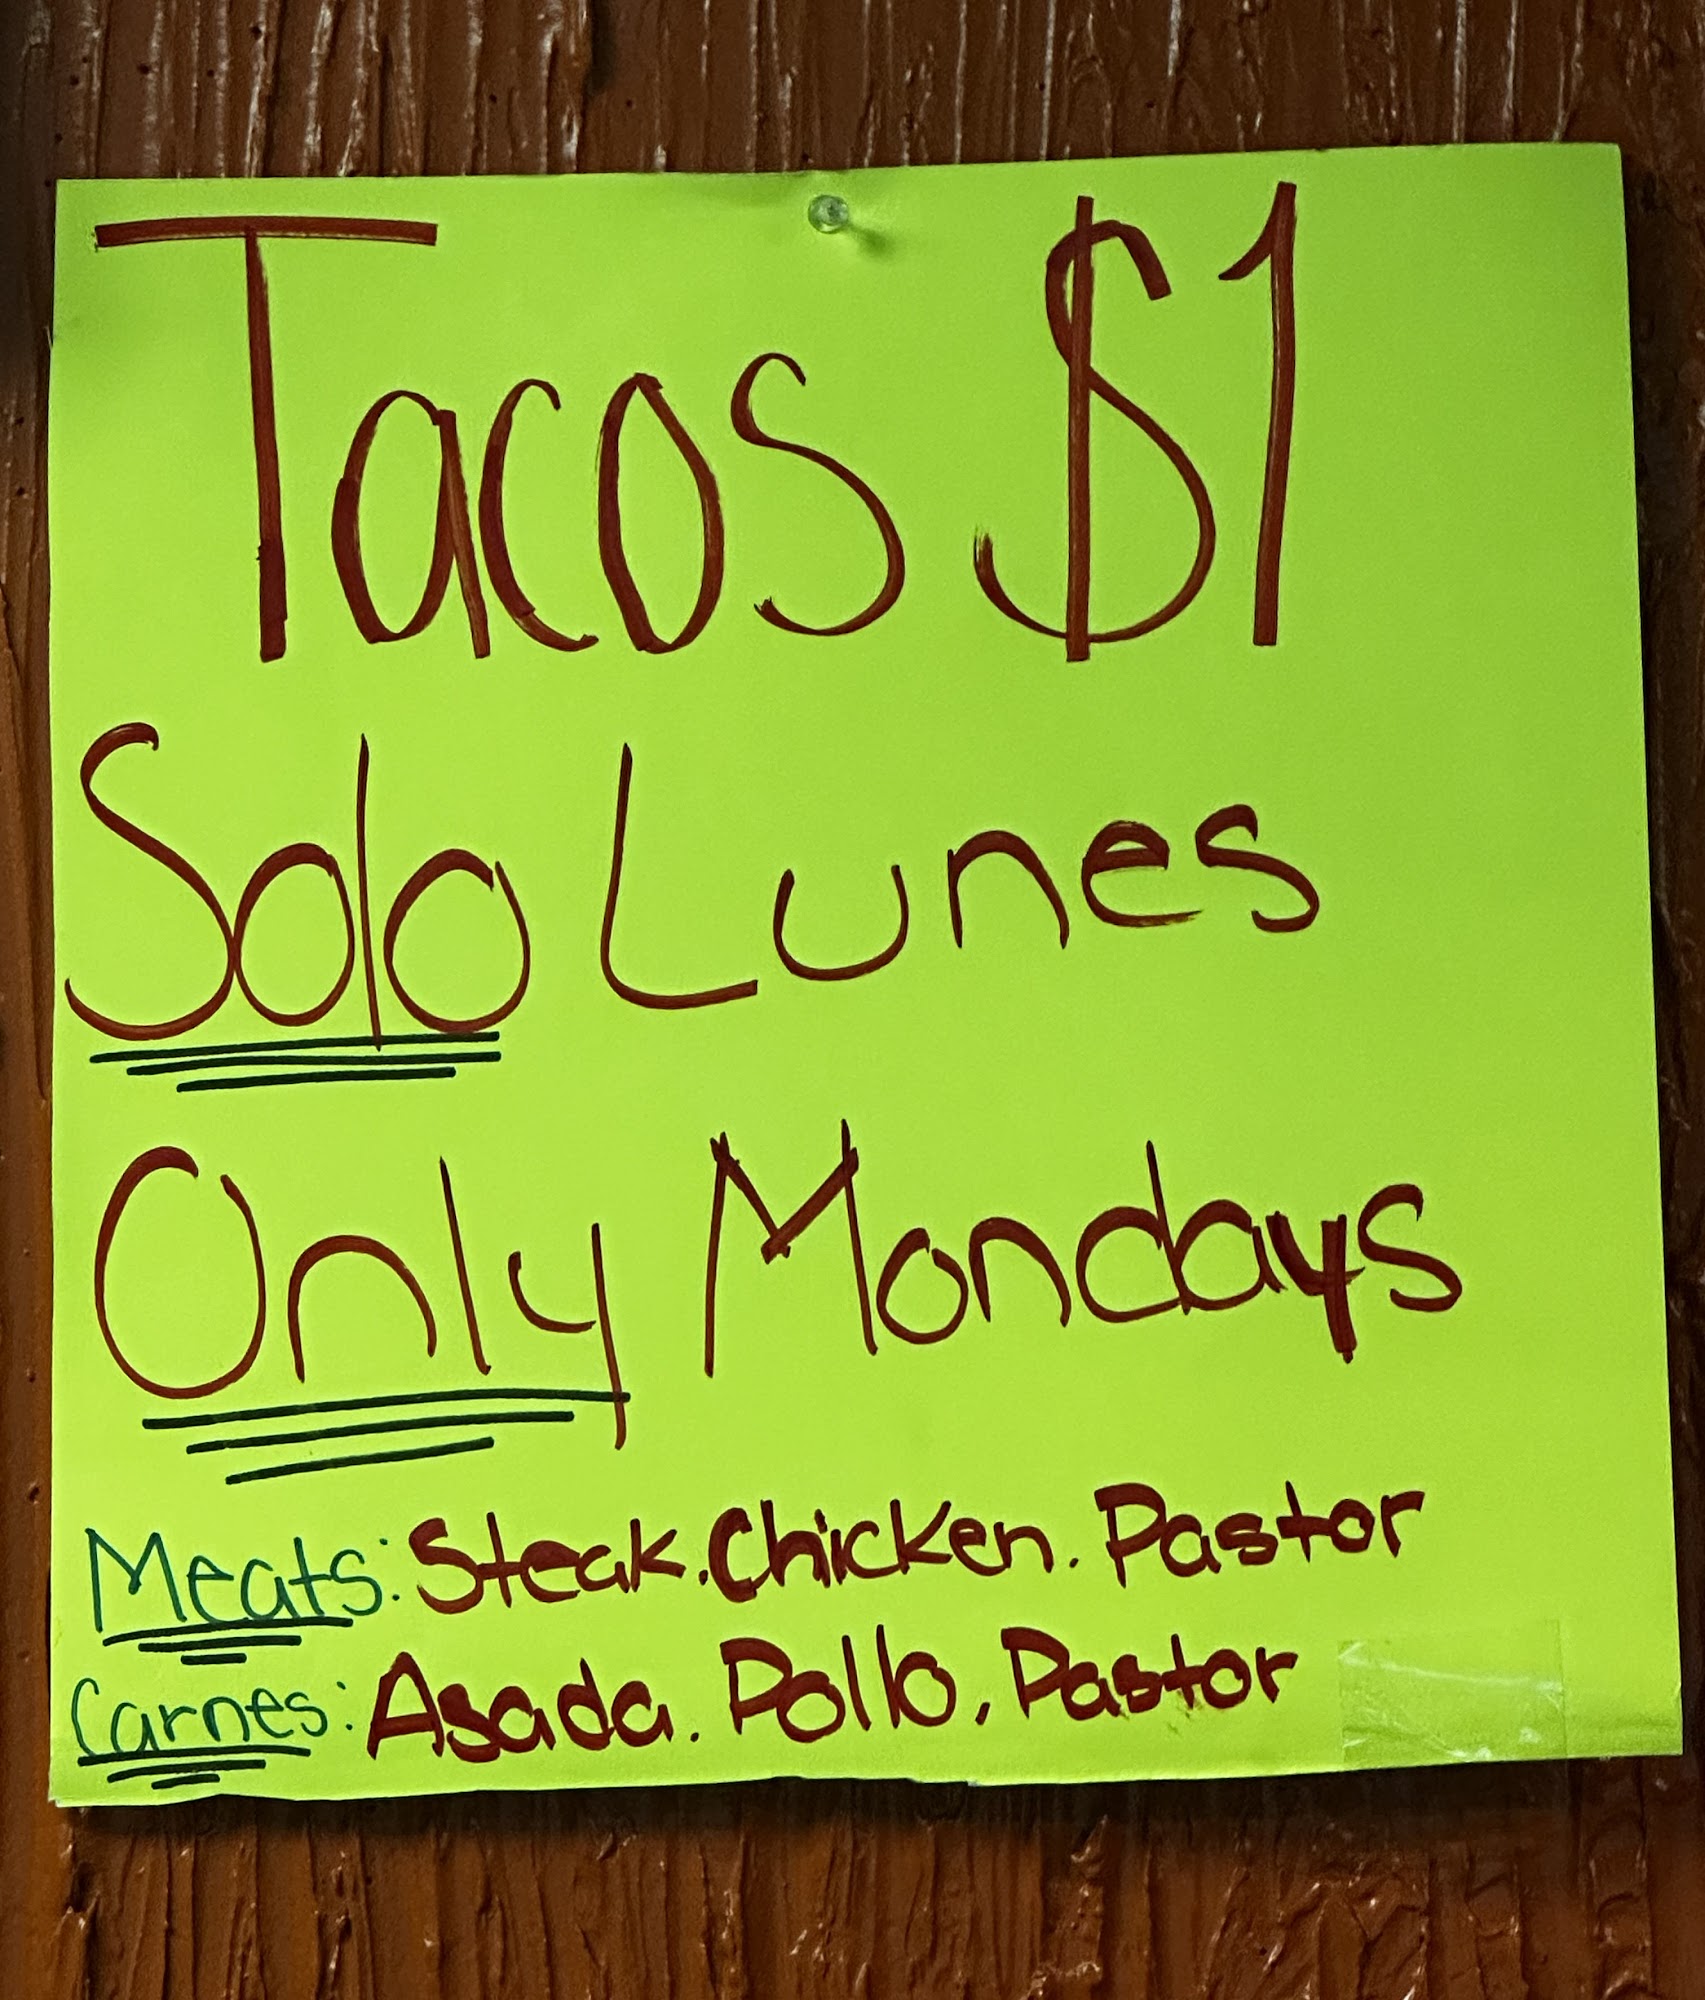 Tacos $1
Solo Lunes
Only Mondays
Meats: Steak. Chicken. Pastor
Carnes: Asada. Pollo, Pastor